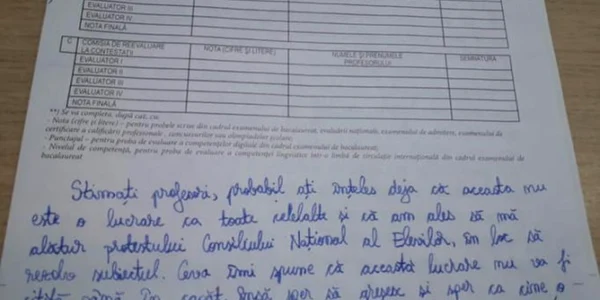 EVALUATOR III
EVALUATOR IV
NOTA FINALĂ
C COMISIA DE REEVALUARE LA CONTESTAȚII NOTA (CIFRE ȘI LITERE) NUMELE ȘI PRENUMELE PROFESORULUI SEMNĂTURA
EVALUATOR I
EVALUATOR II
EVALUATOR III
EVALUATOR IV
NOTA FINALĂ
**) Se va completa, după caz, cu:
- Nota (cifre și litere) – pentru probele scrise din cadrul examenului de bacalaureat, evaluării naționale, examenului de admitere, examenului de
certificare a calificării profesionale, concursurilor sau olimpiadelor școlare;
- Punctajul – pentru proba de evaluare a competențelor digitale din cadrul examenului de bacalaureat;
- Nivelul de competență, pentru proba de evaluare a competenței lingvistice într-o limbă de circulație internațională din cadrul examenului de
bacalaureat
Stimați profesori, probabil ați înțeles deja că aceasta nu
este o lucrare ca toate celelalte și că am ales să mă
alătur protestului Consiliului Național al Elevilor, în loc să
rezolv subiectul. Ceva îmi spune că această lucrare nu va fi
citită până în capăt, însă sper să greșesc și sper ca cine o